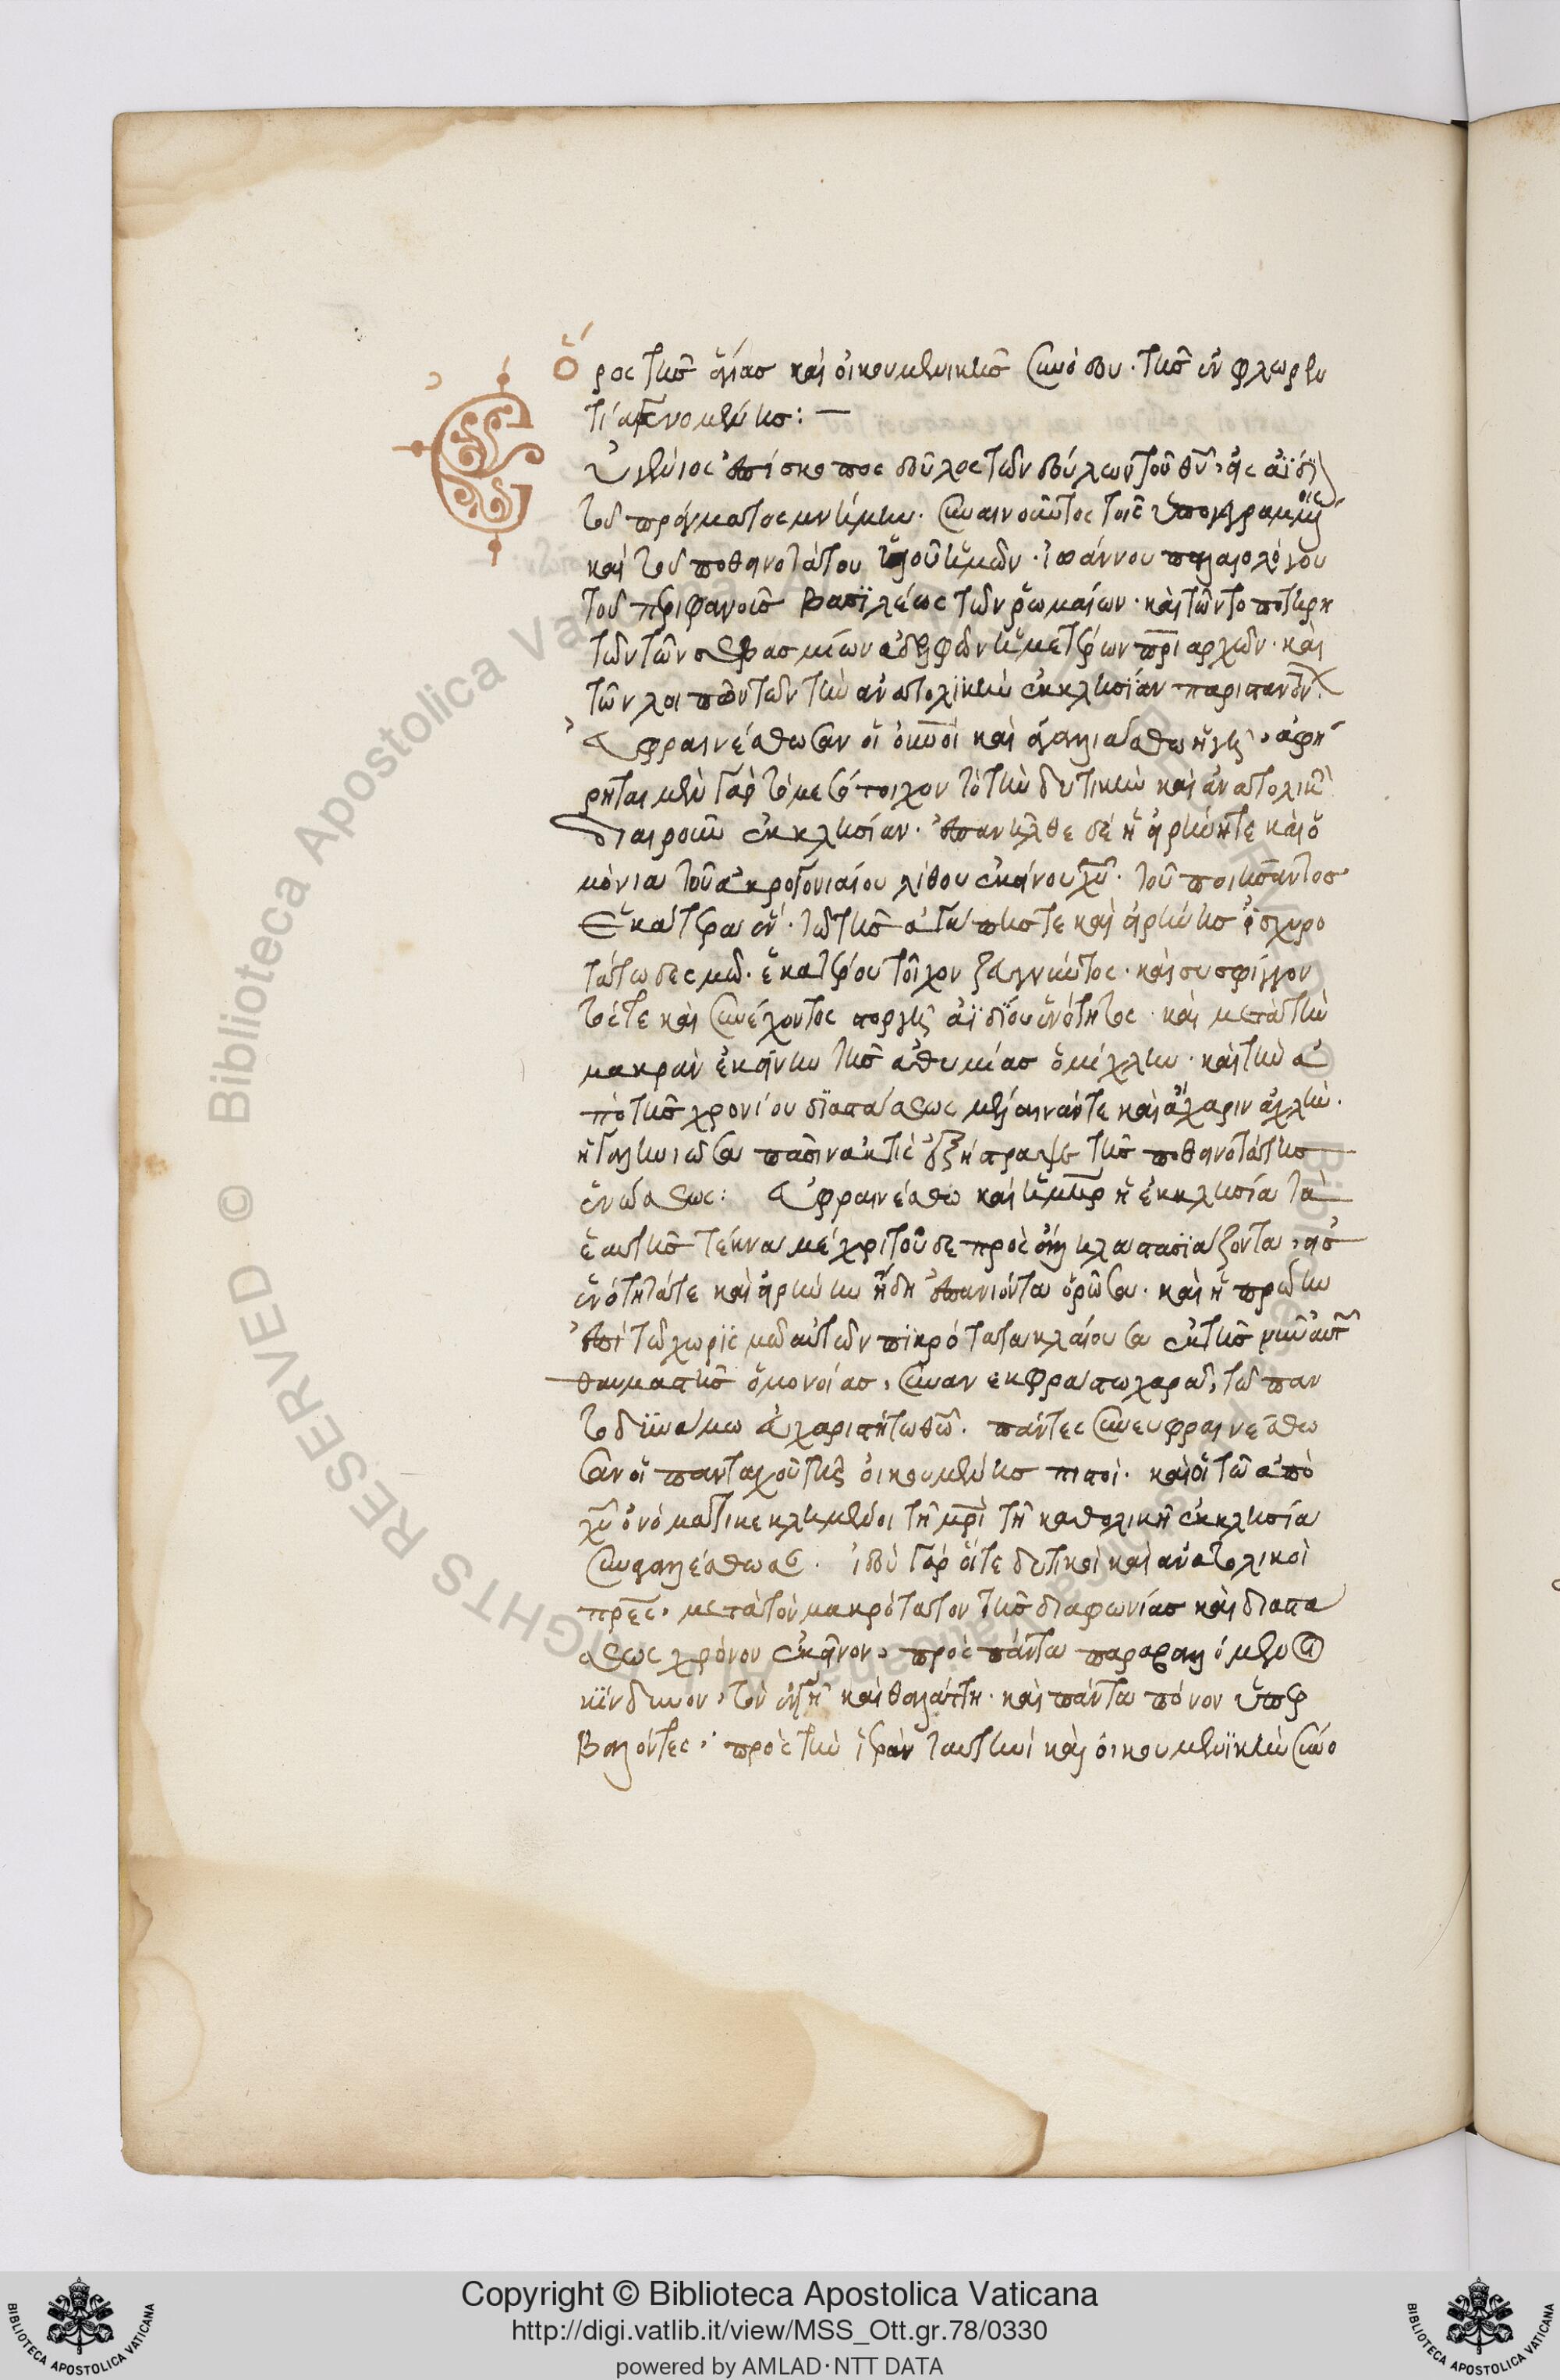 Ὅρος τῆς ἁγίας καὶ οἰκουμενικῆς συνόδου τῆς ἐν φλωρεν
τία γενομένης: —
Εὐγένιος ἐπίσκοπος δοῦλος τῶν δούλων τοῦ θυ, εἰς ἀΐδι
τοῦ πράγματος μνήμην. συναινοῦντος τοῖς ὑπογεγραμμένοις
καὶ τοῦ ποθεινοτάτου υἱοῦ ἡμῶν ἰωάννου παλαιολόγου
τοῦ περιφανοῦς βασιλέως τῶν ῥωμαίων. καὶ τῶν τοποτηρη
τῶν τῶν σεβασμίων ἀδελφῶν ἡμετέρων πριαρχῶν. καὶ
τῶν λοιπῶν τῶν τὴν ἀνατολικὴν ἐκκλησίαν παριστανόντων.
Εὐφραινέσθωσαν οἱ οὐνοὶ καὶ ἀγαλλιάσθω ἡ γῆ, ἀφή
ρηται μὲν γὰρ τὸ μεσότοιχον τὸ τὴν δυτικὴν καὶ ἀνατολικὴν
διαιροῦν ἐκκλησίαν. ἐπανῆλθε δὲ ἡ εἰρήνη τε καὶ ὁ
μόνοια τοῦ ἀκρογονιαίου λίθου ἐκείνου χυ. τοῦ ποιήσαντος
ἑκάτερα ἕν. τῷ τῆς ἀγάπης τε καὶ εἰρήνης ἰσχυρο
τάτω δεσμῷ. ἑκατέρου τοῖχον ξυγνύντος. καὶ συσφίγγον
τός τε καὶ συνέχοντος ἀϊδίου ἑνότητος. καὶ μετὰ τὴν
μακρὰν ἐκείνην τῆς ἀθυμίας ὁμίχλην. καὶ τὴν ἀ
πὸ τῆς χρονίου διαστάσεως μέλαινάν τε καὶ ἄχαριν ἀχλύν.
ἡ γαληνιῶσα πᾶσιν ἀκτὶς ἐξήστραψε τῆς ποθεινοτάτης
ἑνώσεως: Εὐφραινέσθω καὶ ἡ μηρ ἡ ἐκκλησία τὰ
ἑαυτῆς τέκνα μέχρι τοῦδε πρὸς ἄλληλα στασιάζοντα, εἰς
ἑνότητά τε καὶ εἰρήνην ἤδη ἐπανιόντα ὁρῶσα. καὶ ἡ πρώην
ἐπὶ τῷ χωρισμῷ αὐτῶν πικρότατα κλαίουσα ἐκ τῆς νῦν αὐτῶν
θαυμαστῆς ὁμονοίας, σὺν ἀνεκφράστω χαρᾷ, τῷ παν
τοδυνάμω εὐχαριστήτω θῶ. πάντες συνευφραινέσθω
σαν οἱ πανταχοῦ τῆς οἰκουμένης πιστοί. καὶ οἱ τῶ ἀπὸ
χυ ὀνόματι κεκλημένοι τῇ μρὶ τῇ καθολικῇ ἐκκλησία
συναγαλλέσθωσαν. ἰδοὺ γὰρ οἵ τε δυτικοὶ καὶ ἀνατολικοὶ
πρες. μετὰ τὸν μακρότατον τῆς διαφωνίας καὶ διαστά
σεως χρόνον ἐκεῖνον, πρὸς πάντα παραβαλλόμενοι
κίνδυνον, τὸν ἐν γῇ καὶ θαλάττῃ. καὶ πάντα πόνον ὑπερ
βαλόντες, πρὸς τὴν ἱερὰν ταύτην καὶ οἰκουμενικὴν σύνο
Copyright © Biblioteca Apostolica Vaticana
http://digi.vatlib.it/view/MSS_Ott.gr.78/0330
powered by AMLAD·NTT DATA